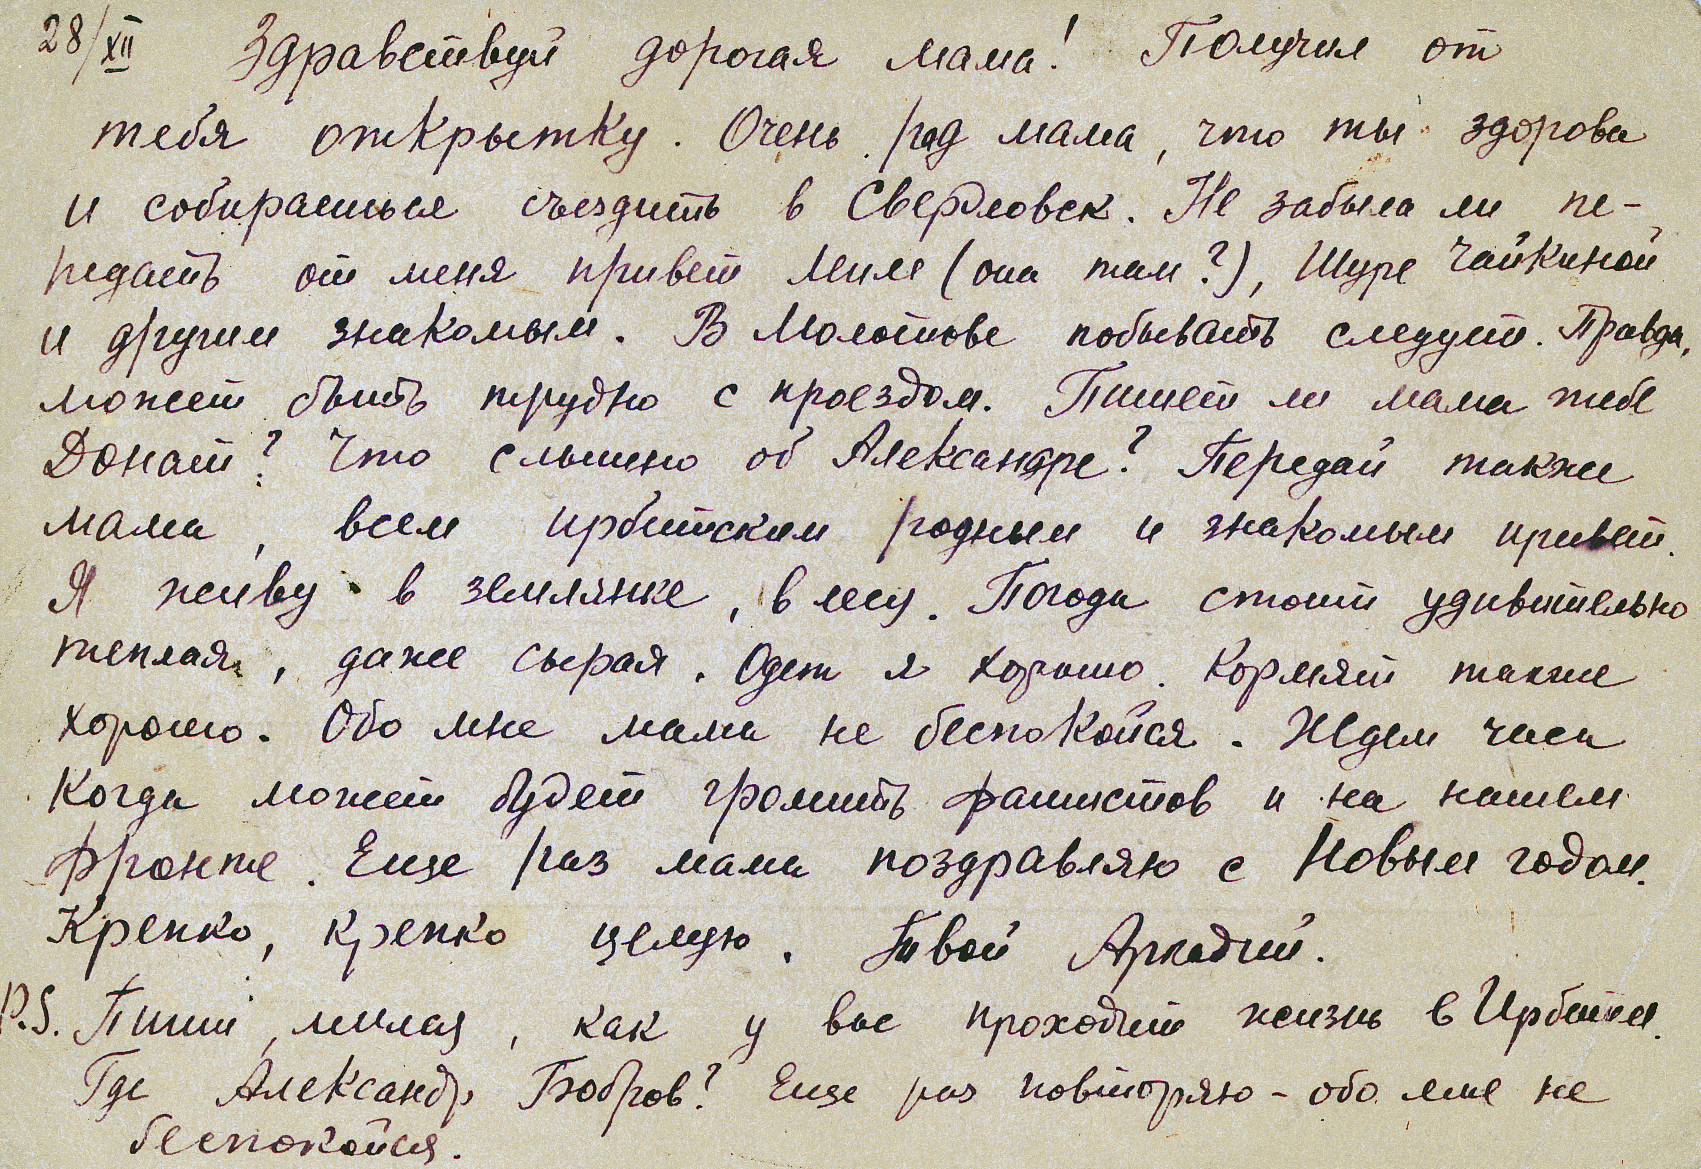 28/XII Здравствуй дорогая мама! Получил от
тебя открытку. Очень рад мама, что ты здорова
и собираешься съездить в Свердловск. Не забыла ли пе-
редать от меня привет Миле (она там?), Шуре Чайкиной
и другим знакомым. В Молотове побывать следует. Правда,
может быть трудно с проездом. Пишет ли мама тебе
Донат? Что слышно об Александре? Передай также
мама, всем ирбитским родным и знакомым привет.
Я живу в землянке, в лесу. Погода стоит удивительно
теплая, даже сырая. Одет я хорошо. Кормят также
хорошо. Обо мне мама не беспокойся. Ждем часа
когда может будет громить фашистов и на нашем
фронте. Еще раз мама поздравляю с Новым годом.
Крепко, крепко целую. Твой Аркадий.
P.S. Пиши, милая, как у вас проходит жизнь в Ирбите.
Где Александр Бобров? Еще раз повторяю - обо мне не
беспокойся.